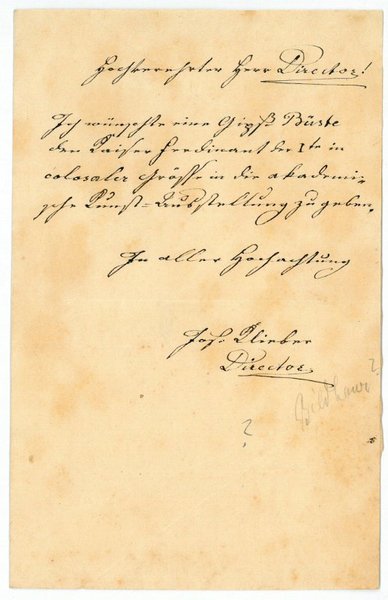 Hochverehrter Herr Director!
Ich wünschte eine Gipß Büste
den Kaiser Ferdinant der Ite in
colosaler Grösse in die akademi-
sche Kunst-Ausstellung zu geben.
In aller Hochachtung
Jos. Klieber
Director
Bildhauer ?
?